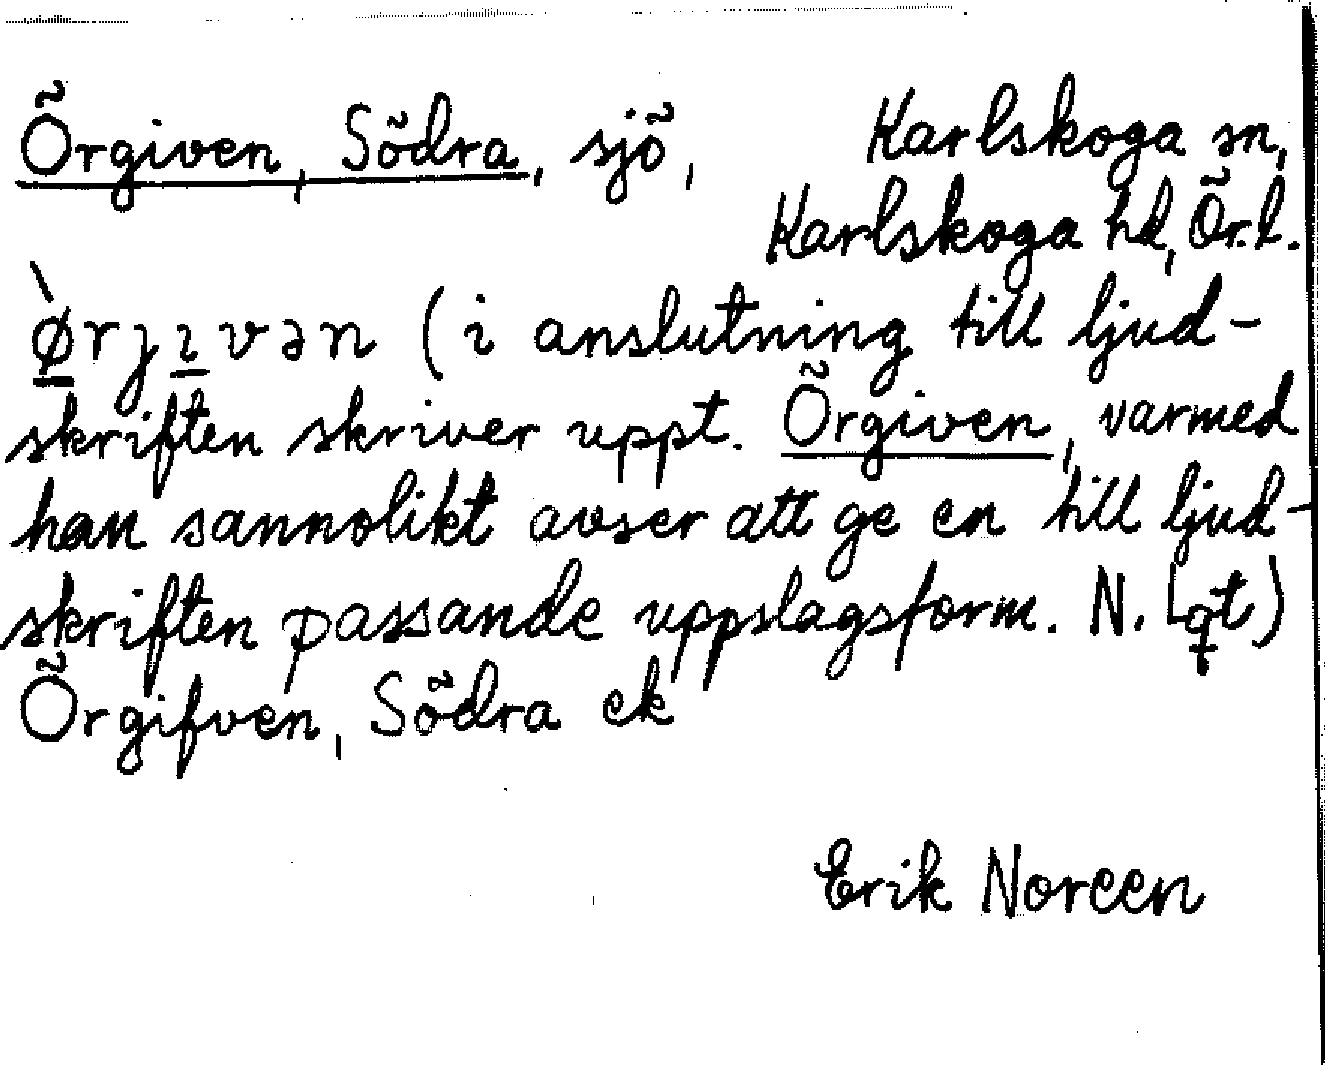 Örgiven, Södra, sjö, Karlskoga sn,
Karlskoga hd, Ör. l.
ø̀rȷɪvən (i anslutning till ljud-
skriften skriver uppt. Örgiven, varmed
han sannolikt avser att ge en till ljud-
skriften passande uppslagsform. N.
Örgifven, Södra ek
Erik Noreen